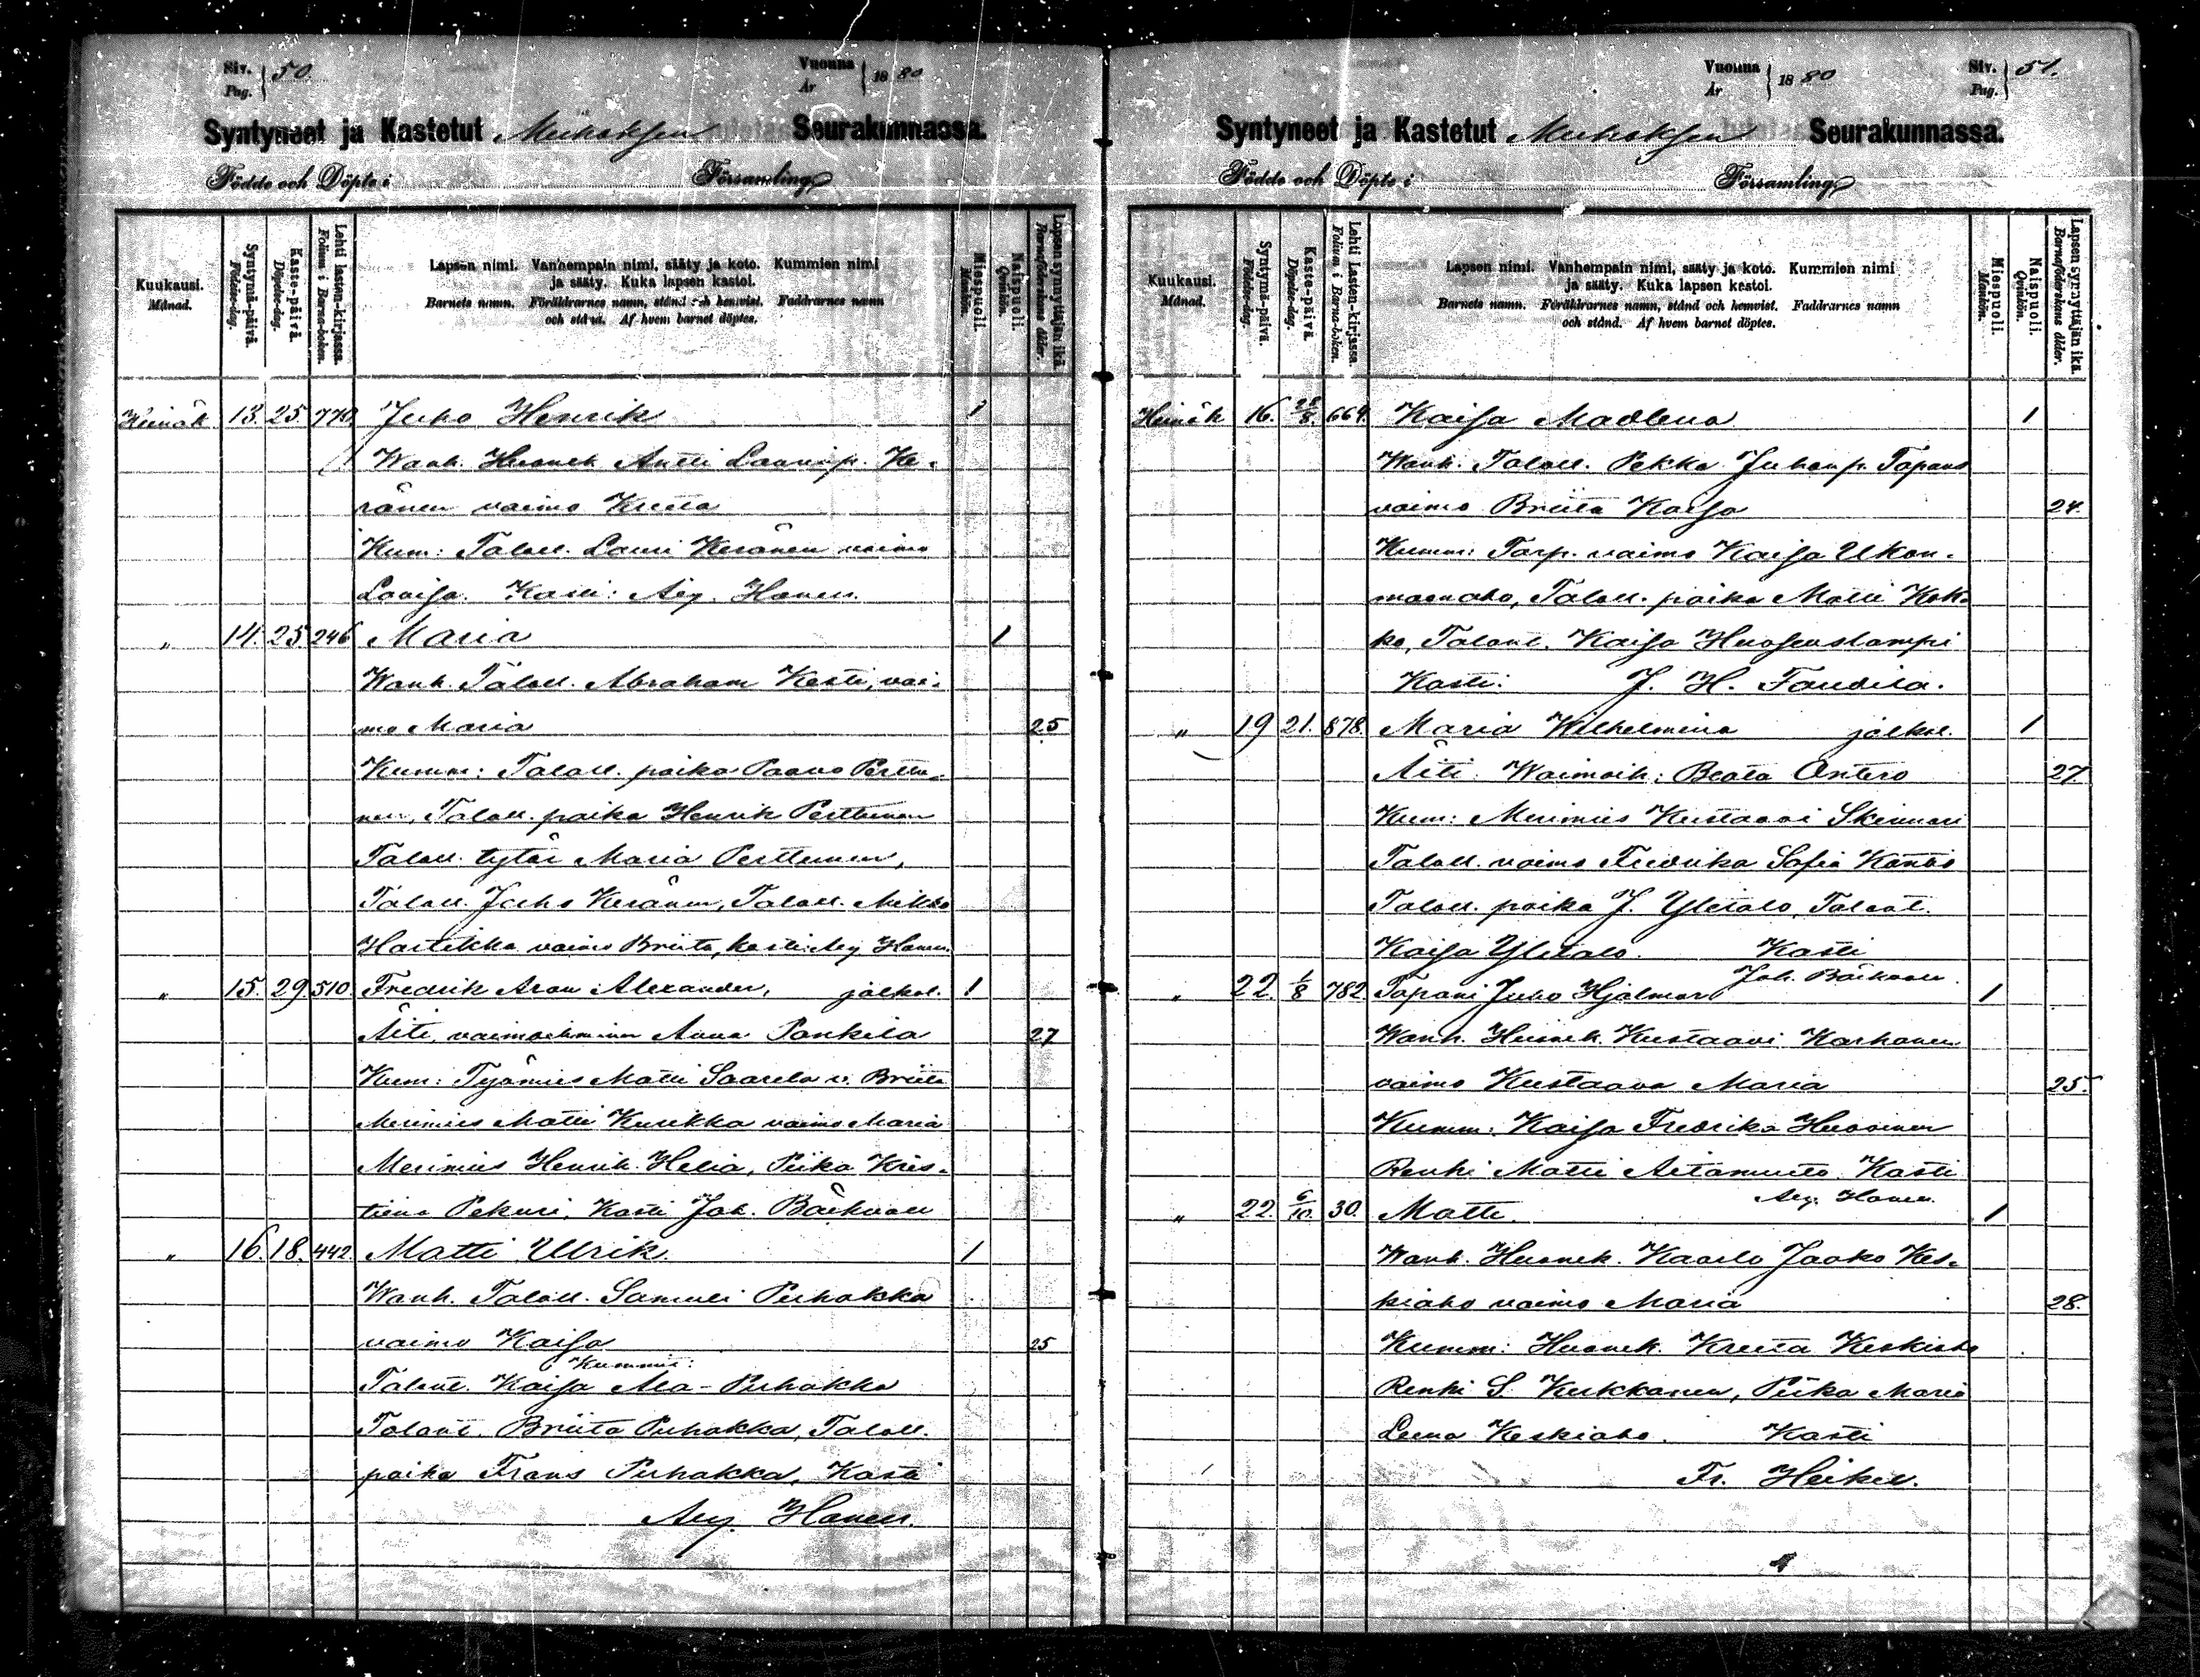 Siv. 50.
Pag.
Vuonna 1880
År
Syntyneet ja Kastetut Muhoksen Seurakunnassa.
Födde och Döpte i Församling
Kuukausi.
Månad.
Syntymä-päivä.
Födelse-dag.
Kaste-päivä.
Döpelse-dag.
Lehti lasten-kirjassa.
Folium i Barna-boken.
Lapsen nimi. Vanhempain nimi, sääty ja koto. Kummien nimi
ja sääty. Kuka lapsen kastoi.
Barnets namn. Föräldrarnes namn, stånd och hemvist. Faddrarnes namn
och stånd. Af hvem barnet döptes.
Miespuoli.
Mankön.
Naispuoli.
Qvinkön.
Lapsen synnyttäjän ikä.
Barnaföderskans ålder.
Heinäk 13. 25. 770 Juho Henrik 1
Wanh. Huonek Antti Laurinp. Ke-
ränen vaimo Kreeta
Kum: Taloll. Lauri Keränen vaimo
Loviisa. Kasti: Aug. Hanell.
„ 14. 25. 246 Maria 1
Wanh. Taloll. Abraham Kesti, vai-
mo Maria 25
Kumm: Taloll. poika Paavo Perttu-
nen, Taloll. poika Henrik Perttunen
Taloll. tytär Maria Perttunen,
Taloll. Juho Keränen, Taloll. Mikko
Hartikka vaimo Briita, kasti: Aug Hanell.
„ 15. 29. 510. Fredrik Aron Alexander, jalkal. 1
Äiti, vaimoihminen Anna Pankila 27
Kum: Työmies Matti Saarela v. Briita
Merimies Matti Kurikka vaimo Maria
Merimies Henrik Helia, Piika Kris-
tiina Pekuri, Kasti Joh. Bäckvall
„ 16. 18. 442. Matti Ulrik. 1
Wanh. Taloll. Samuli Puhakka
vaimo Kaisa 25
Kummit:
Talont. Kaisa Ala-Puhakka
Talont. Briita Puhakka, Taloll.
poika Frans Puhakka, Kasti
Aug. Hanell.
Vuonna 1880
År
Siv. 51.
Pag.
Syntyneet ja Kastetut Muhoksen Seurakunnassa.
Födde och Döpte i Församling
Kuukausi.
Månad.
Syntymä-päivä.
Födelse-dag.
Kaste-päivä.
Döpelse-dag.
Lehti Lasten-kirjassa.
Folium i Barna-boken.
Lapsen nimi. Vanhempain nimi, sääty ja koto. Kummien nimi
ja sääty. Kuka lapsen kastoi.
Barnets namn. Föräldrarnes namn, stånd och hemvist. Faddrarnes namn
och stånd. Af hvem barnet döptes.
Miespuoli.
Mankön.
Naispuoli.
Qvinkön.
Lapsen synnyttäjän ikä.
Barnaföderskans ålder.
Heinäk 16. 28/8. 664. Kaisa Madlena 1
Wanh. Taloll. Pekka Juhanp. Tapans
vaimo Briita Kaisa 24.
Kumm: Torp. vaimo Kaisa Ukon-
maanaho, Taloll. poika Matti Kok-
ko, Talont. Kaisa Huosuslampi
Kasti: J. H. Fandila.
„ 19 21. 878. Maria Wilhelmina jalkal. 1
Äiti. Waimoih: Beata Antero 27.
Kum: Merimies Kustaavi Skinnari
Taloll. vaimo Fredrika Sofia Känsä
Taloll. poika J. Ylitalo, Talont.
Kaisa Ylitalo. Kasti
Joh. Bäckvall.
„ 22. 1/8 782 Tapani Juho Hjalmar 1
Wanh. Huonek. Kustaavi Karhonen
vaimo Kustaava Maria 25.
Kumm. Kaisa Fredrika Huovinen
Renki Matti Aitamurto. Kasti
Aug. Hanell.
„ 22. 6/10. 30. Matti. 1
Wanh. Huonek. Kaarlo Jaako Kes-
kiaho vaimo Maria 28.
Kumm: Huonek. Kreeta Keskiaho
Renki S. Kukkanen, Piika Maria
Leena Keskiaho. Kasti
Fr. Heikel.